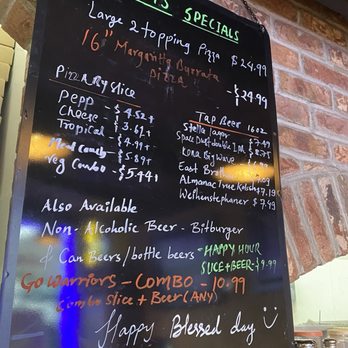 SPECIALS
Large 2 topping Pizza $24.99
16" Margarita Burrata Pizza - $24.99
Pizza By Slice
Pepp - $4.52+
Cheese - $3.62+
Tropical - $4.91+
Meat Combo - $5.89+
Veg Combo - $5.44+
Tap Beer 16oz
Stella Lager $7.49
Kona Big Wave
East Bro
Almanac True Kolsch $7.19
Weihenstephaner $7.49
Also Available
Non-Alcoholic Beer - Bitburger
& Can Beers/bottle beers - HAPPY HOUR
SLICE+BEER=$9.99
Go Warriors - COMBO - 10.99
Combo Slice + Beer (ANY)
Happy Blessed day